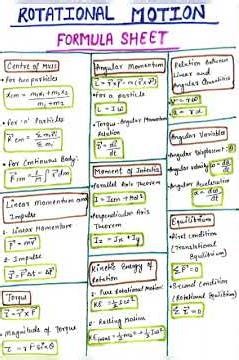 ROTATIONAL MOTION
FORMULA SHEET
Centre of Mass
• For two particles
Xcm = m₁x₁ + m₂x₂
m₁ + m₂
• For 'n' Particles
• For Continuous Body:
Linear Momentum and
Impulse
1. Linear Momentum
2. Impulse
Torque
τ = r × F
• Magnitude of Torque
τ = rF sinθ
Angular Momentum
• For a particle
L = Iω
• Torque - Angular Momentum
Relation
Moment of Inertia
• Parallel Axis Theorem
I = Icm + Md²
• Perpendicular Axis
Theorem
Iz = Ix + Iy
Kinetic Energy of
Rotation
1. Pure Rotational Motion:
KE = ½Iω²
2. Rolling Motion
Relation between
Linear and
Angular Quantities
v = rω
a = rα
Angular Variables
Angular Displacement: θ
Angular velocity ω = dθ
dt
Angular Acceleration
α = dω
dt
Equilibrium
• First Condition
(Translational
Equilibrium)
Σ F = 0
• Second Condition
(Rotational Equilibrium)
Σ τ = 0